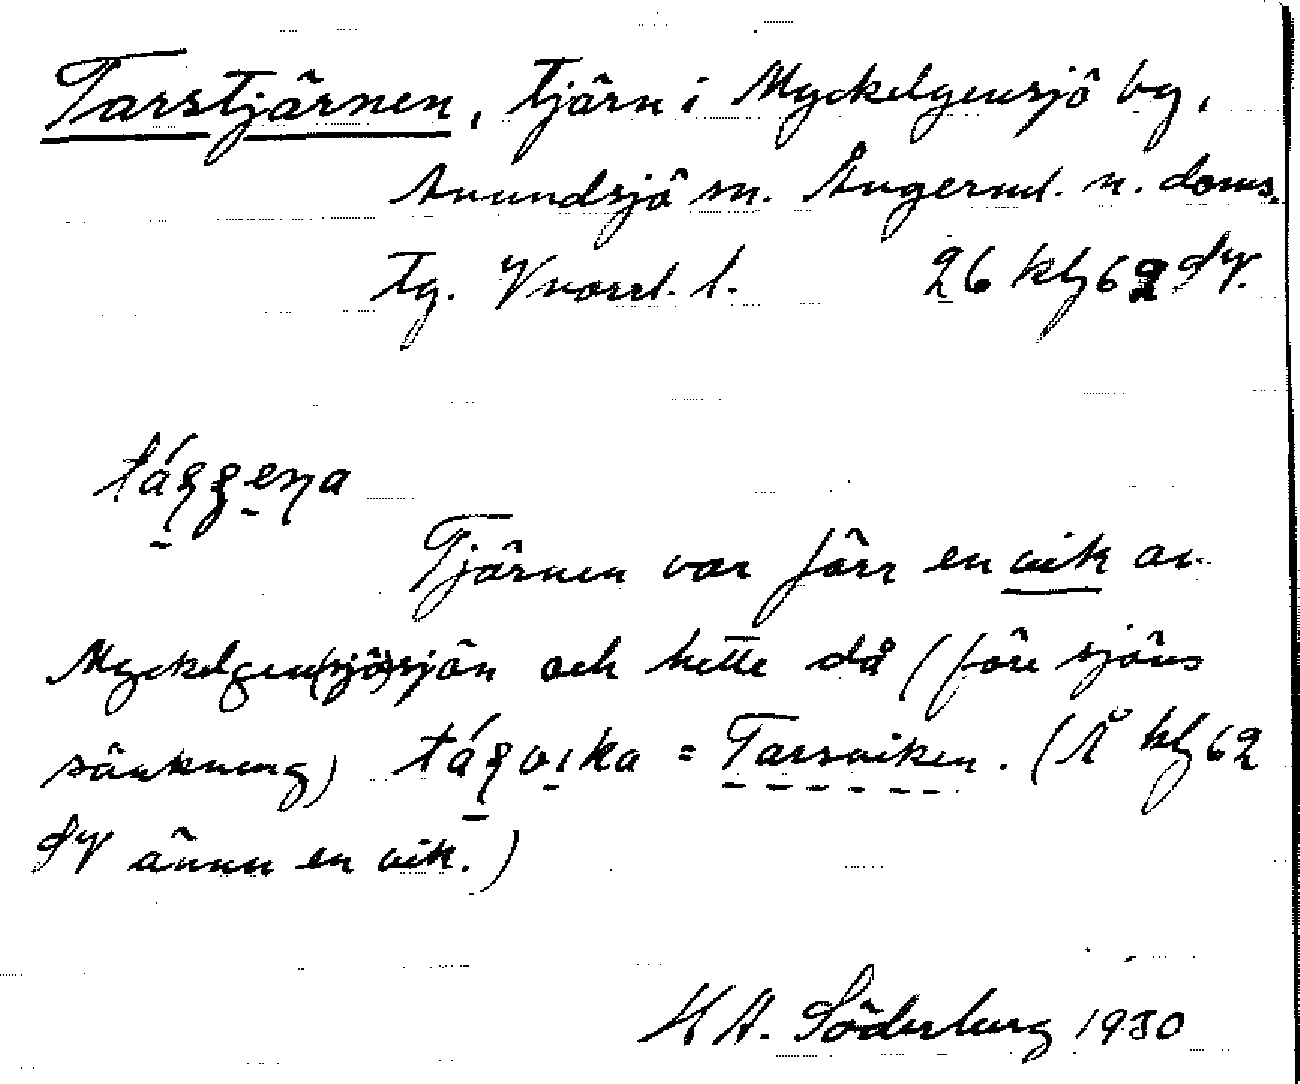 Tarstjärnen, tjärn i Myckelgensjö by,
Anundsjö sn. Ångerml. n. doms.
tg. Vnorrl. l. 26 kbj 62 SV.
Tjärnen var förr en vik av
Myckelgen(sjö)sjön och hette då (före sjöns
sänkning) = Tarsviken. (Å kbj 62
SV ännu en vik.)
H A. Söderberg 1930